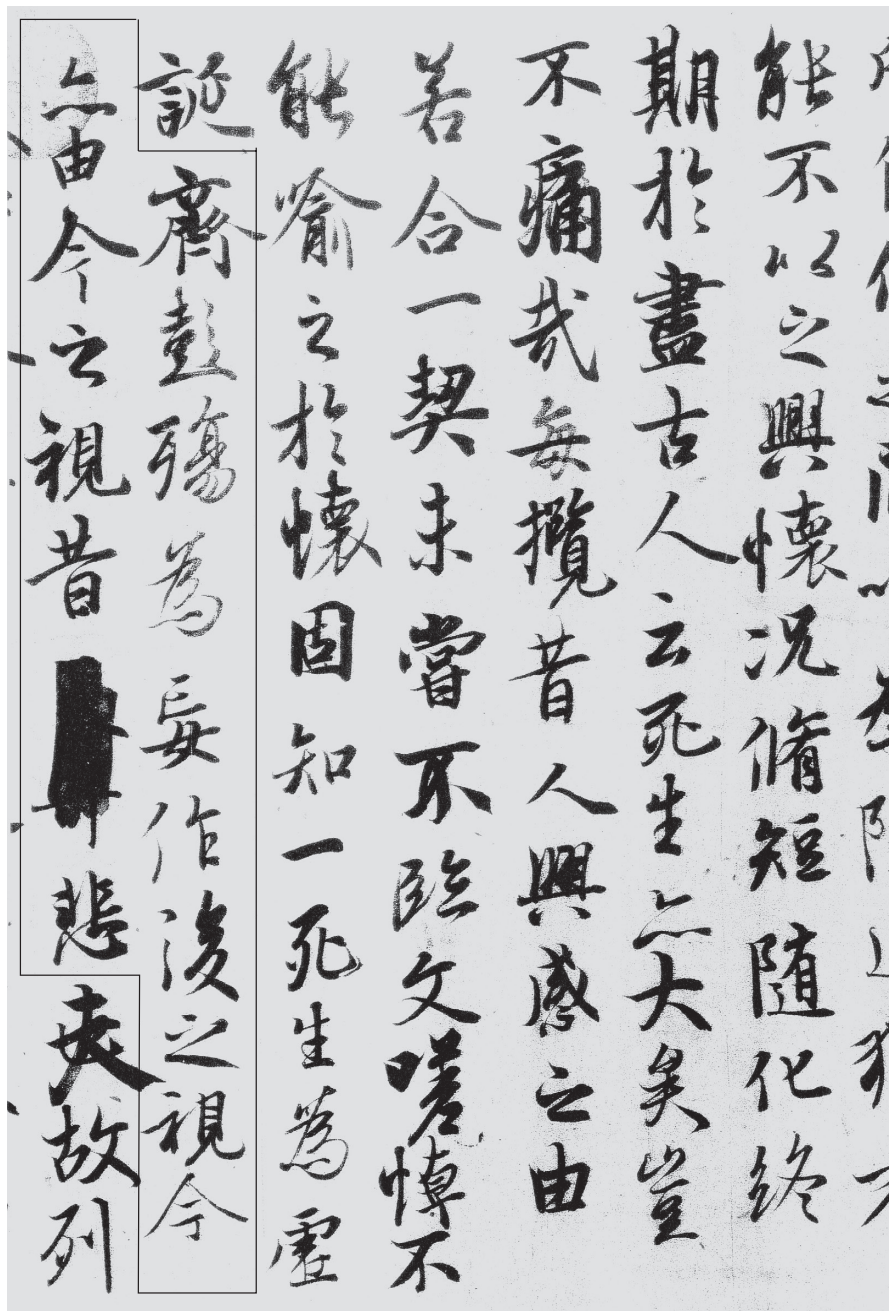 能不以之興懷况脩短随化終
期於盡古人云死生亦大矣豈
不痛哉每攬昔人興感之由
若合一契未嘗不臨文嗟悼不
能喻之於懷固知一死生為虛
誕齊彭殤為妄作後之視今
亦由今之視昔悲夫故列